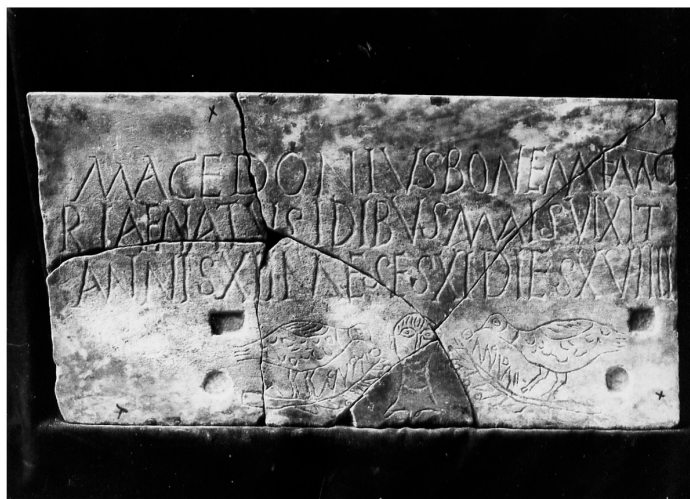 MACEDONIVSBONEMEMO
RIAENATVSIDIBVSMAISVIXIT
ANNISXIII MESESXIDIESXVIIII